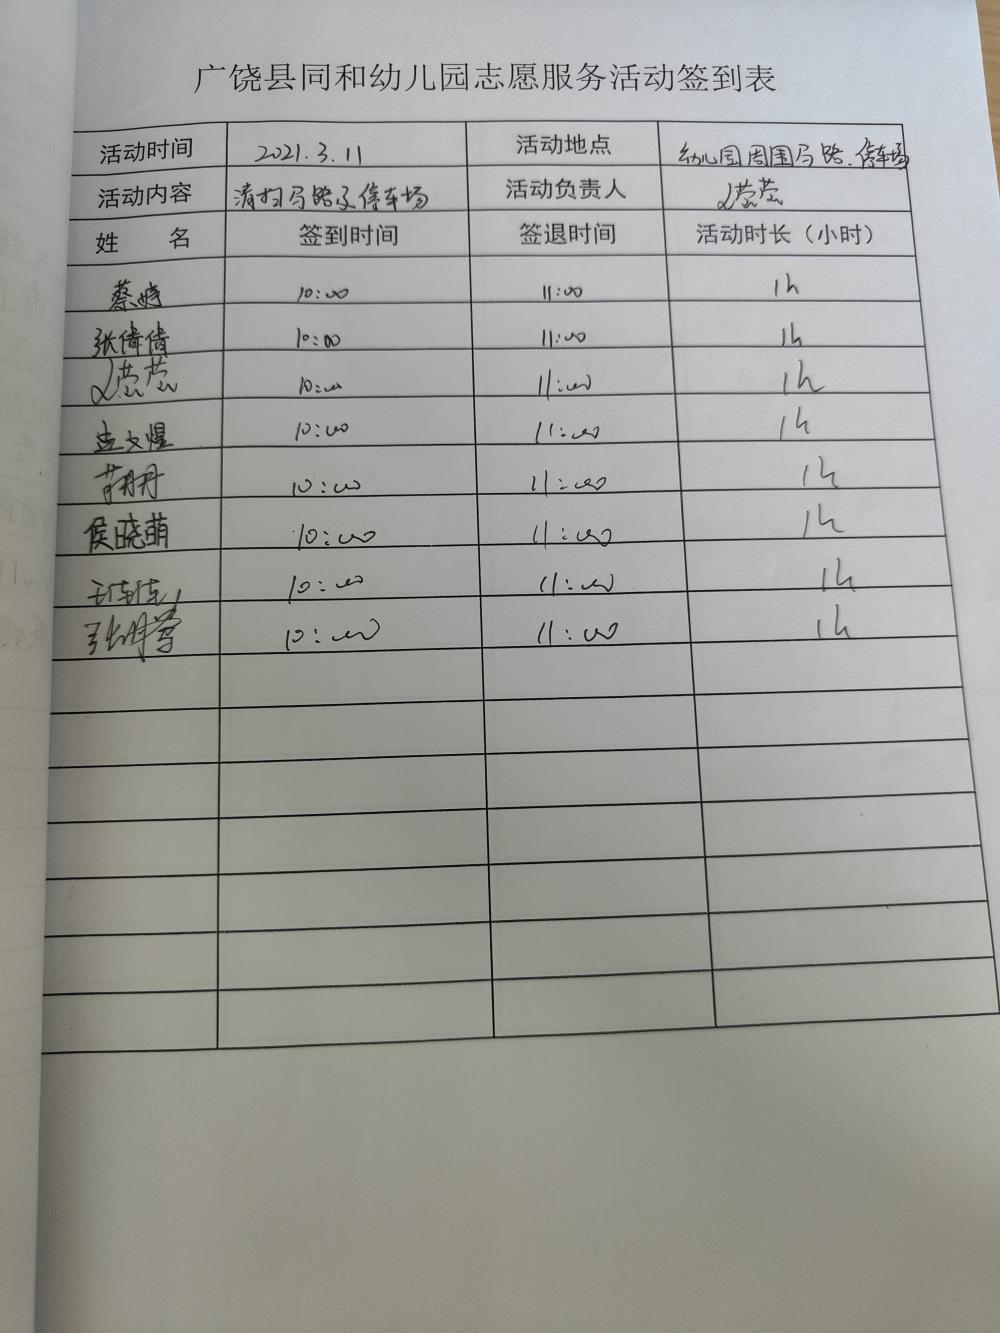 广饶县同和幼儿园志愿服务活动签到表
活动时间 2021.3.11 活动地点 幼儿园周围马路.停车场
活动内容 清扫马路及停车场 活动负责人 莹莹
姓 名 签到时间 签退时间 活动时长（小时）
蔡婷 10:00 11:00 1h
张倩倩 10:00 11:00 1h
莹莹 10:00 11:00 1h
孟文煜 10:00 11:00 1h
丹丹 10:00 11:00 1h
侯晓萌 10:00 11:00 1h
10:00 11:00 1h
张 10:00 11:00 1h